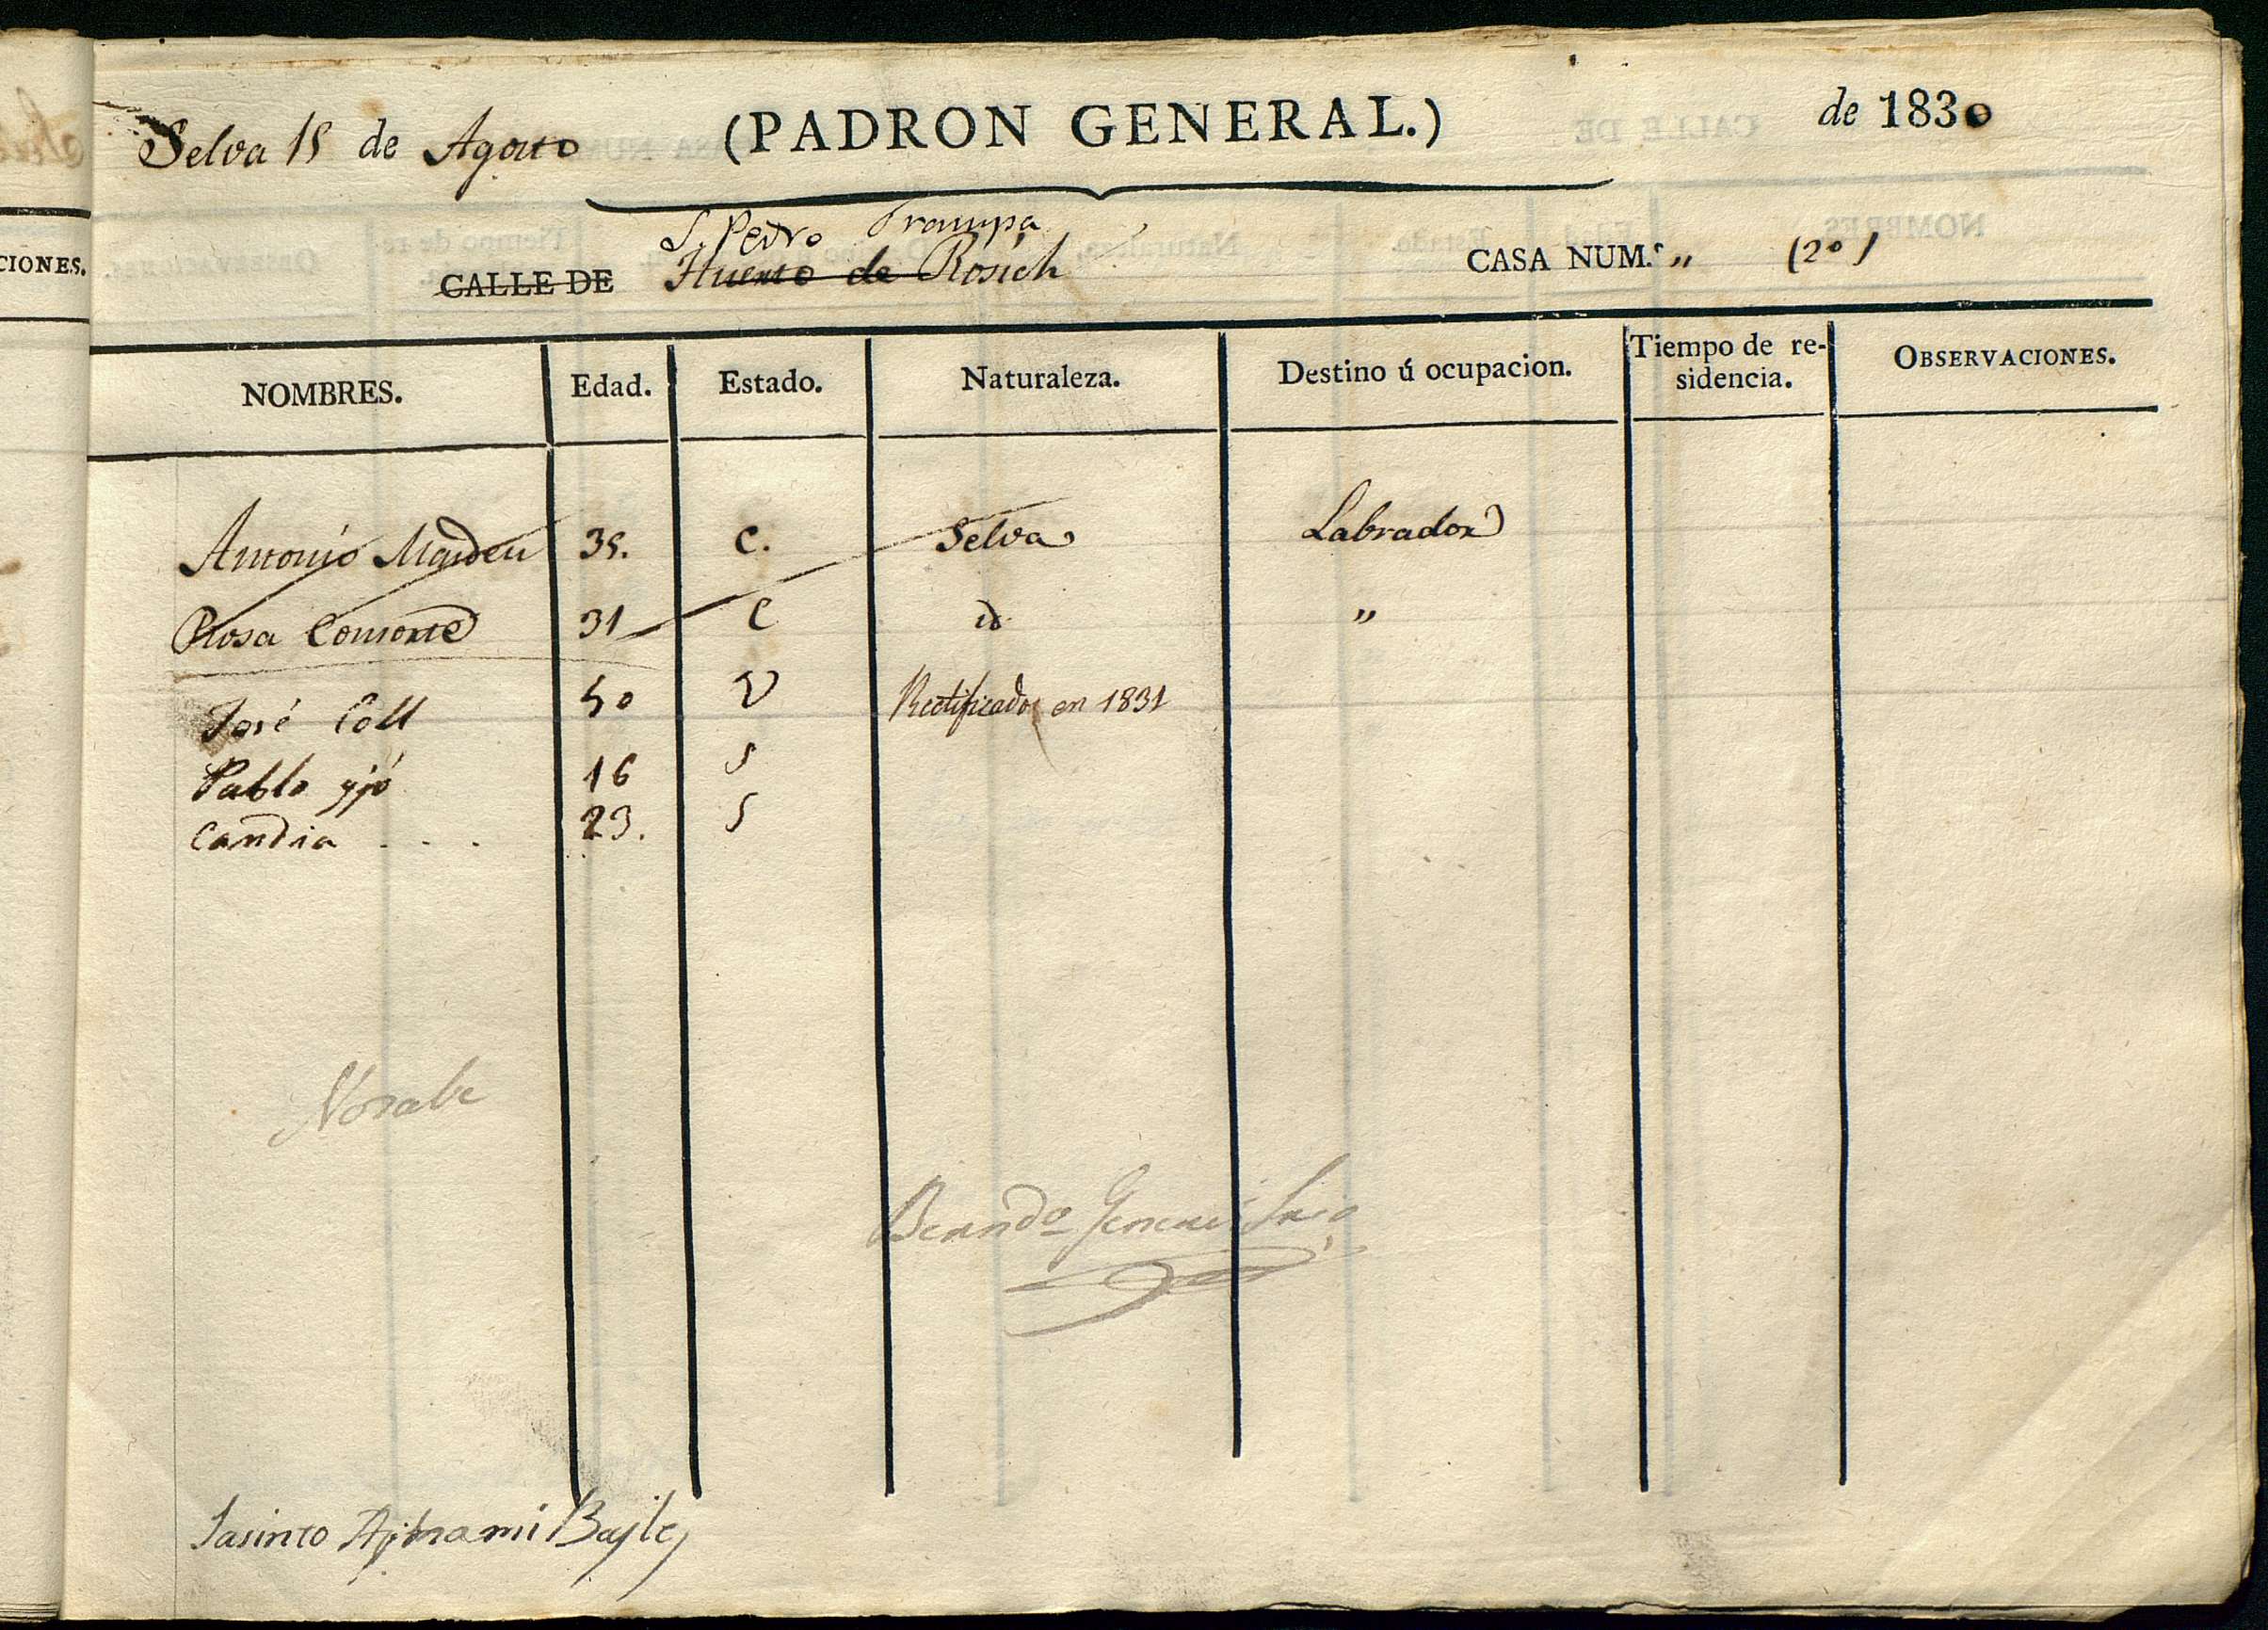 Selva 15 de Agosto (PADRON GENERAL.) de 1830
S. Pedro Trampa
CALLE DE Huerto de Rosich CASA NUM.º „ (20)
CIONES.
NOMBRES. Edad. Estado. Naturaleza. Destino ú ocupacion. Tiempo de re-
sidencia. OBSERVACIONES.
Antonio Masdeu 35. C. Selva Labrador
Rosa Consorte 31 C id „
José Coll 50 V Rectificado en 1831
Pablo yjo 16 S
Candia . . . 23. S
Jasinto Bayle